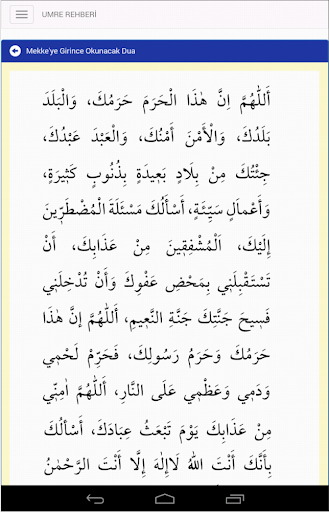 UMRE REHBERİ
Mekke'ye Girince Okunacak Dua
أَللّٰهُمَّ اِنَّ هٰذَا الْحَرَمَ حَرَمُكَ، وَالْبَلَدَ
بَلَدُكَ، وَالْأَمْنَ أَمْنُكَ، وَالْعَبْدَ عَبْدُكَ،
جِئْتُكَ مِنْ بِلَادٍ بَعِيدَةٍ بِذُنُوبٍ كَثِيرَةٍ،
وَأَعْمَالٍ سَيِّئَةٍ، أَسْأَلُكَ مَسْئَلَةَ الْمُضْطَرِّينَ
إِلَيْكَ، اَلْمُشْفِقِينَ مِنْ عَذَابِكَ، أَنْ
تَسْتَقْبِلَنِي بِمَحْضِ عَفْوِكَ وَأَنْ تُدْخِلَنِي
فَسِيحَ جَنَّتِكَ جَنَّةِ النَّعِيمِ، أَللّٰهُمَّ إِنَّ هٰذَا
حَرَمُكَ وَحَرَمُ رَسُولِكَ، فَحَرِّمْ لَحْمِي
وَدَمِي وَعَظْمِي عَلَى النَّارِ، أَللّٰهُمَّ اٰمِنِّي
مِنْ عَذَابِكَ يَوْمَ تَبْعَثُ عِبَادَكَ، أَسْأَلُكَ
بِأَنَّكَ أَنْتَ اللّٰهُ لَاإِلٰهَ إِلَّا أَنْتَ الرَّحْمٰنُ